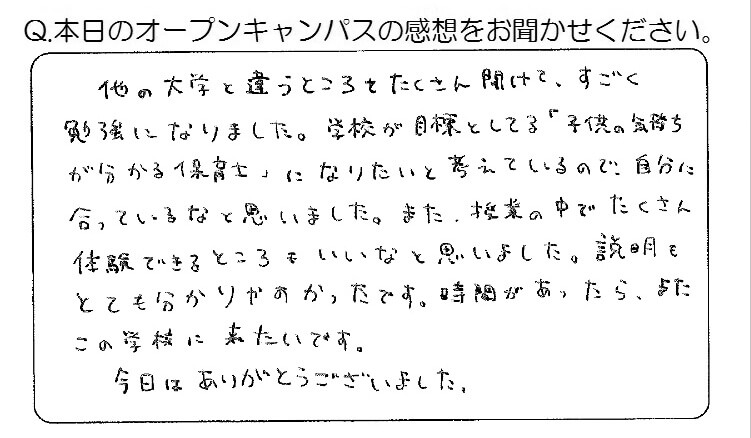 Q.本日のオープンキャンパスの感想をお聞かせください。
他の大学と違うところをたくさん聞けて、すごく
勉強になりました。学校が目標としてる「子供の気持ち
が分かる保育士」になりたいと考えているので、自分に
合っているなと思いました。また、授業の中でたくさん
体験できるところもいいなと思いました。説明も
とても分かりやすかったです。時間があったら、また
この学校に来たいです。
今日はありがとうございました。